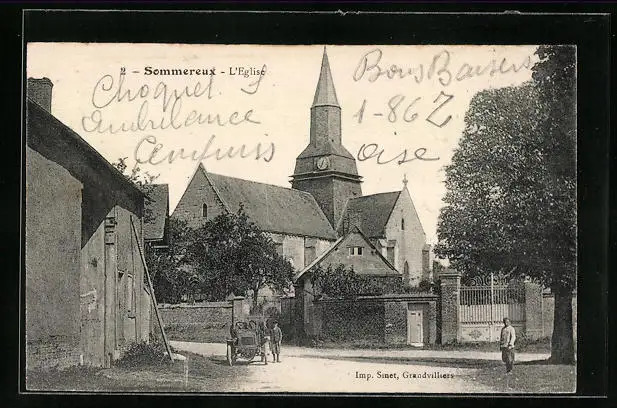 2 - Sommereux - L'Eglise
Choquet J
Ambulance
Bons Baisers
1-862
Oise
Imp. Sinet, Grandvilliers